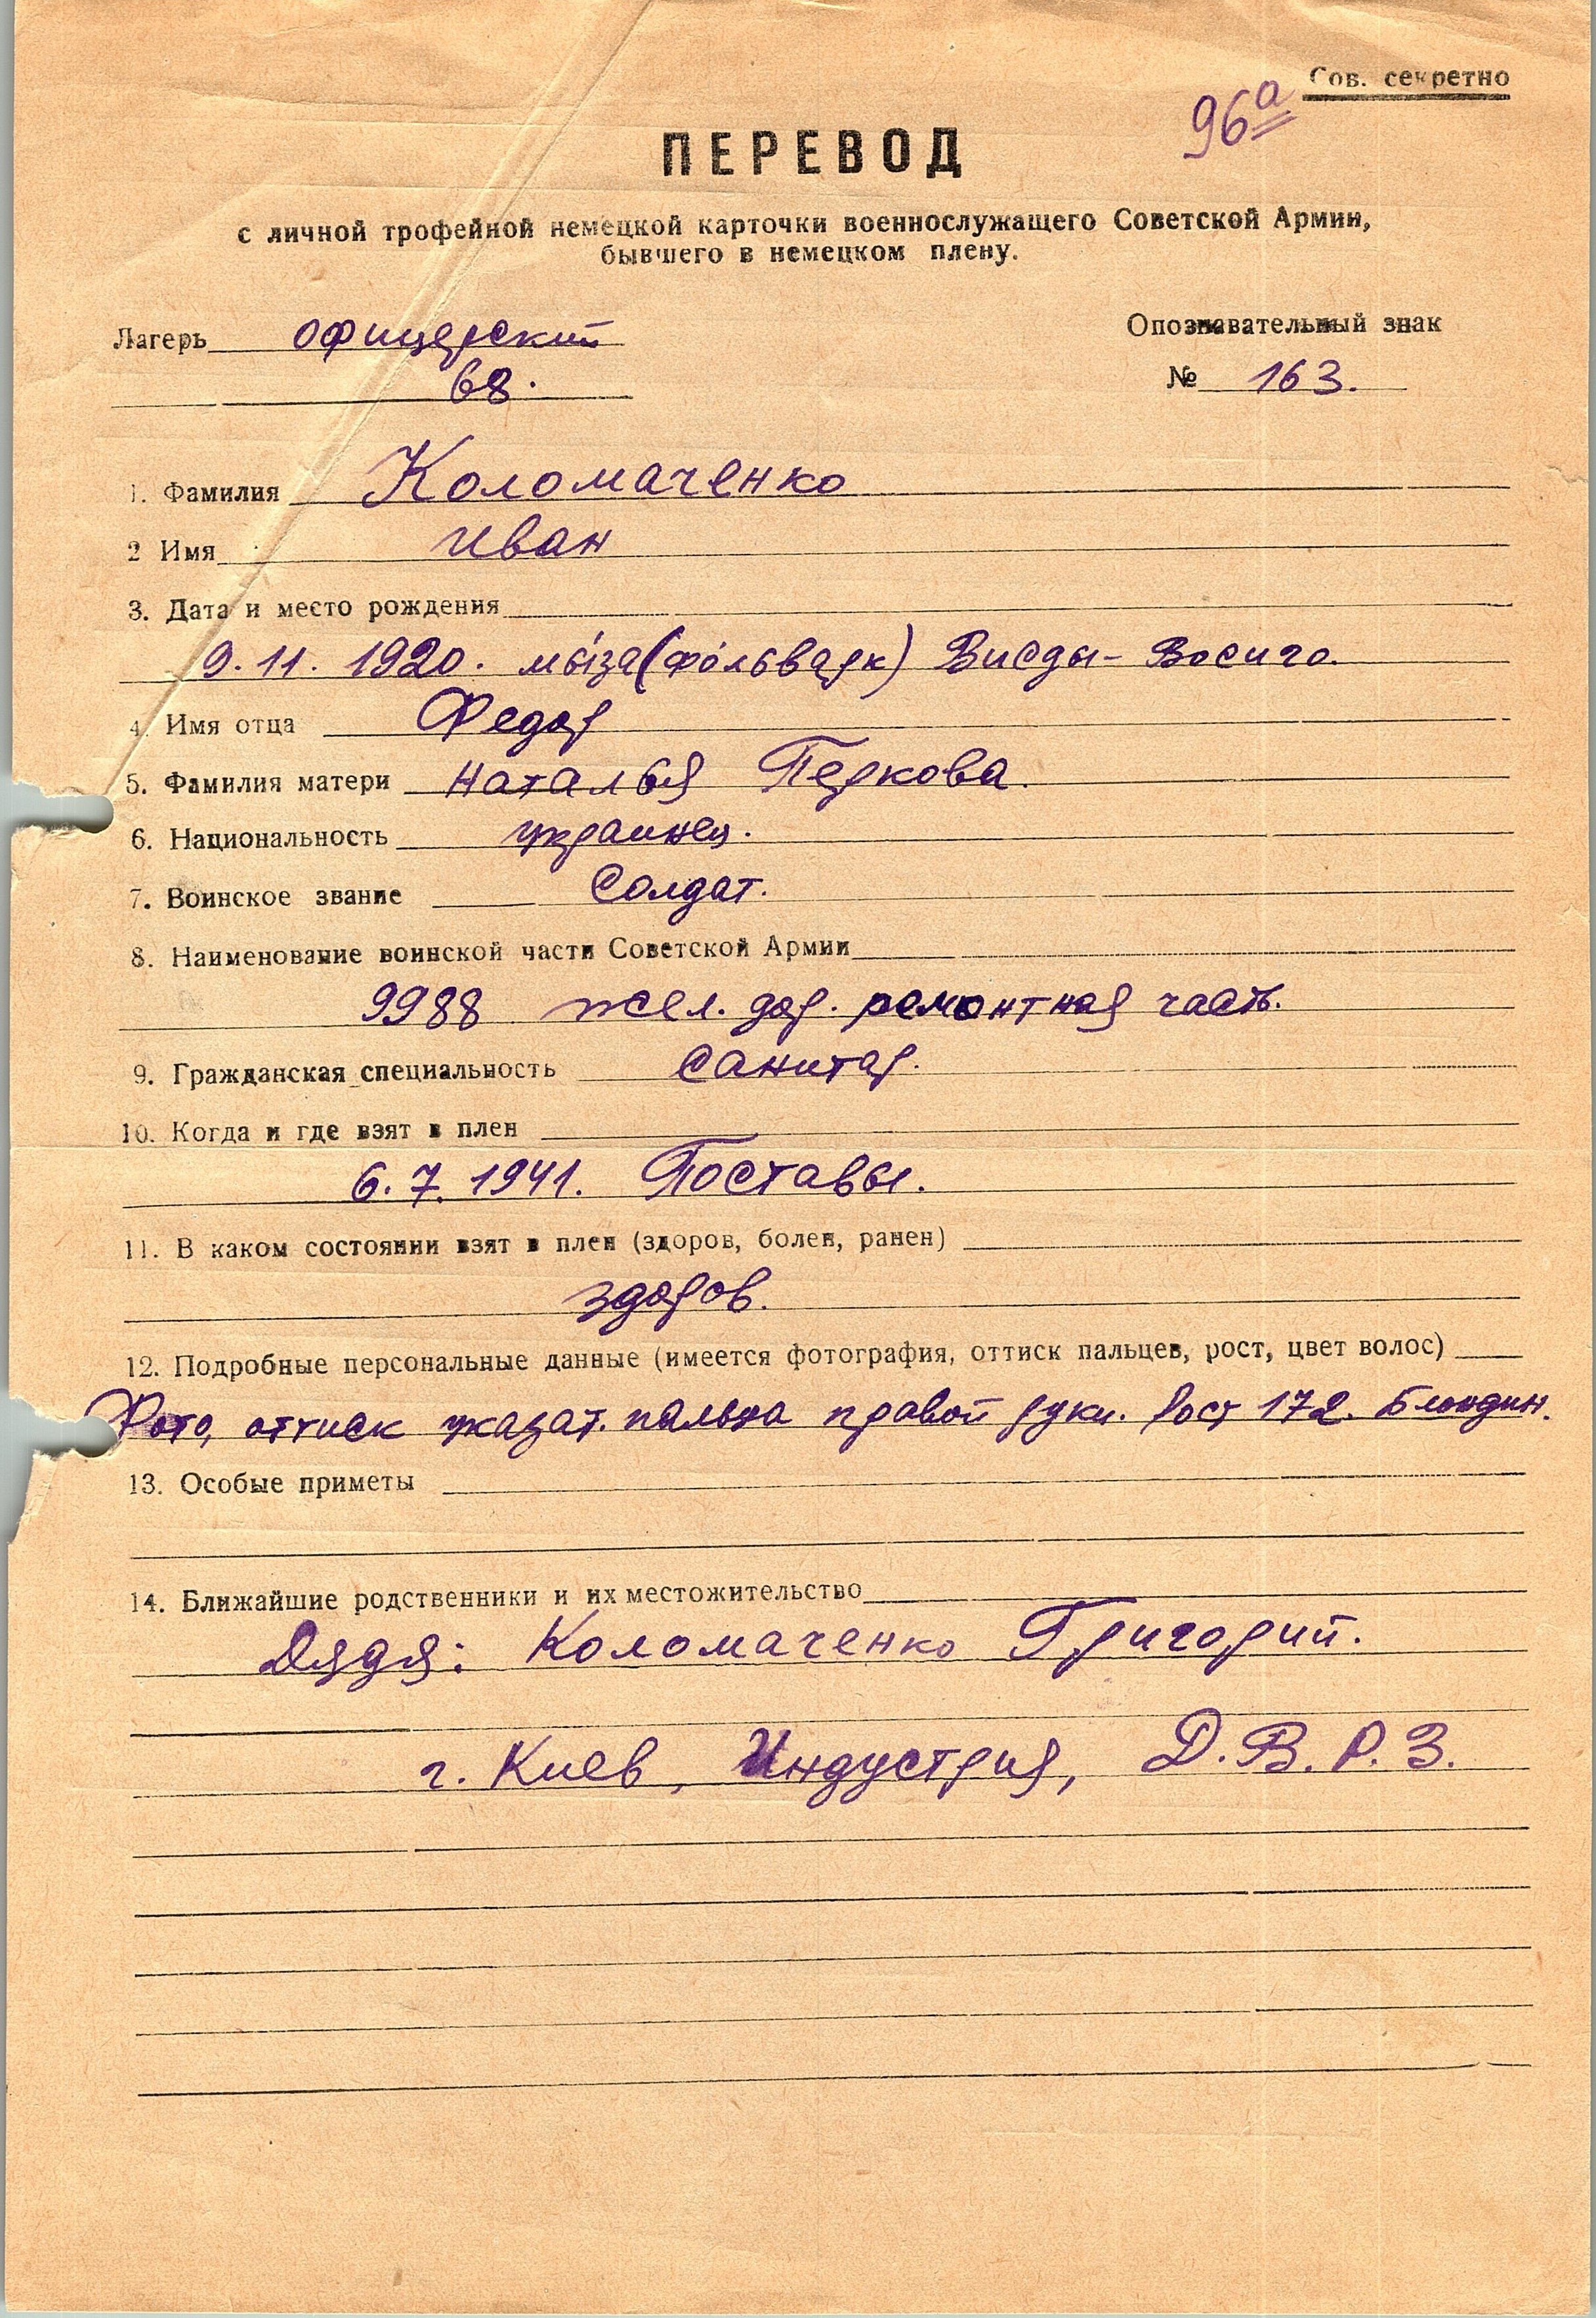 Сов. секретно
96а
ПЕРЕВОД
с личной трофейной немецкой карточки военнослужащего Советской Армии,
бывшего в немецком плену.
Лагерь офицерский
68.
Опознавательный знак
№ 163.
1. Фамилия Коломаченко
2 Имя Иван
3. Дата и место рождения
9.11.1920. мыза (фольварк) Висды-Восиго.
4. Имя отца Федор
5. Фамилия матери Наталья Перкова.
6. Национальность украинец.
7. Воинское звание Солдат.
8. Наименование воинской части Советской Армии
9988 жел. дор. ремонтная часть.
9. Гражданская специальность Санитар.
10. Когда и где взят в плен
6.7.1941. Поставы.
11. В каком состоянии взят в плен (здоров, болен, ранен)
здоров.
12. Подробные персональные данные (имеется фотография, оттиск пальцев, рост, цвет волос)
Фото, оттиск указат. пальца правой руки. Рост 172. Блондин.
13. Особые приметы
14. Ближайшие родственники и их местожительство
Дядя: Коломаченко Григорий.
г. Киев, Индустрия, Д.В.Р.З.